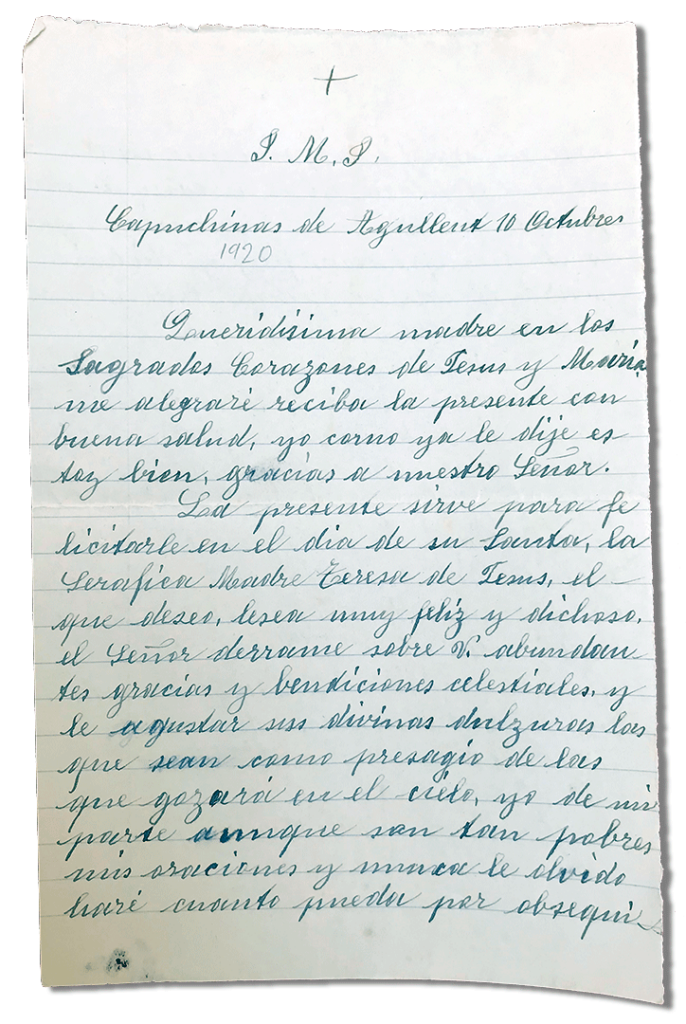 +
J. M. J.
Capuchinas de Agullent 10 Octubre
1920
Queridisima madre en los
Sagrados Corazones de Jesus y Maria
me alegraré reciba la presente con
buena salud, yo como ya le dije es
toy bien, gracias a nuestro Señor.
La presente sirve para fe
licitarle en el dia de su Santa, la
Serafica Madre Teresa de Jesus, el
que deseo, lesea muy feliz y dichoso,
el Señor derrame sobre V. abundan
tes gracias y bendiciones celestiales, y
le agustar sus divinas dulzuras las
que sean como presagio de las
que gozará en el cielo, yo de mi
parte aunque son tan pobres
mis oraciones y nunca le olvido
haré cuanto pueda por obsequi